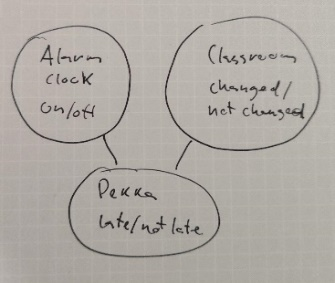 Alarm
clock
on/off
Classroom
changed/
not changed
Pekka
late/not late